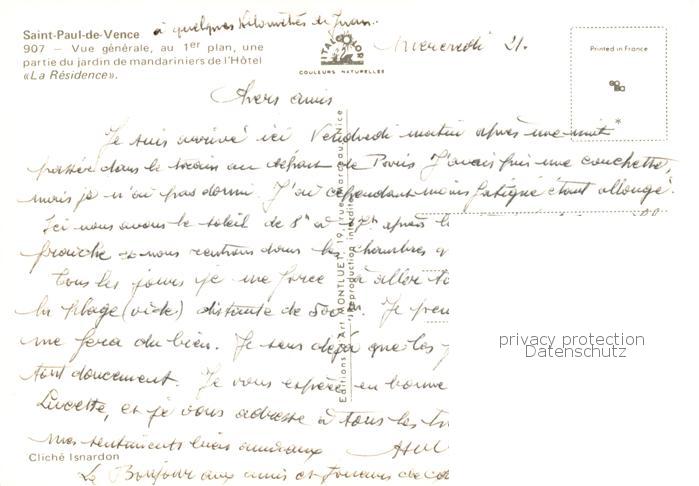 Saint-Paul-de-Vence à quelques Kilomètres de Juan.
907 – Vue générale, au 1er plan, une
partie du jardin de mandariniers de l'Hôtel
«La Résidence».
ITALCOLOR
COULEURS NATURELLES
Mercredi 21.
Printed in France
*
Chers amis
Je suis arrivé ici Vendredi matin après une nuit
passée dans le train au départ de Paris J'avais pris une couchette,
mais je n'ai pas dormi. J'ai cependant moins fatigué étant allongé.
Ici nous avons le soleil de 8h à 17h après l
fraîche et nous rentrons dans les chambres q
Tous les jours je me force à aller
la plage (vide) distante de 500 m. Je pren
me fera du bien. Je sens déjà que les
tout doucement. Je vous espère en bonne
Lucette, et je vous adresse à tous les tr
mes sentiments bien amicaux
Le Bonjour aux amis et joueurs de
Editions d'Art MONTLUET, 19, rue Marceau, Nice
Reproduction interdite
Cliché Isnardon
privacy protection
Datenschutz